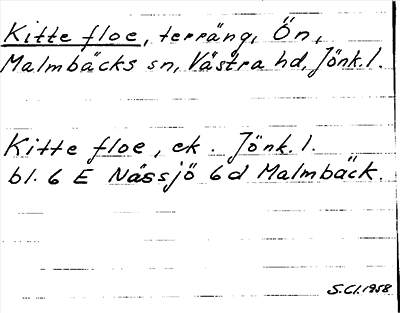 Kitte floe, terräng, Ön,
Malmbäcks sn, Västra hd, Jönk.l.
Kitte floe, ek. Jönk.l.
bl. 6 E Nässjö 6d Malmbäck.
S.Cl.1958